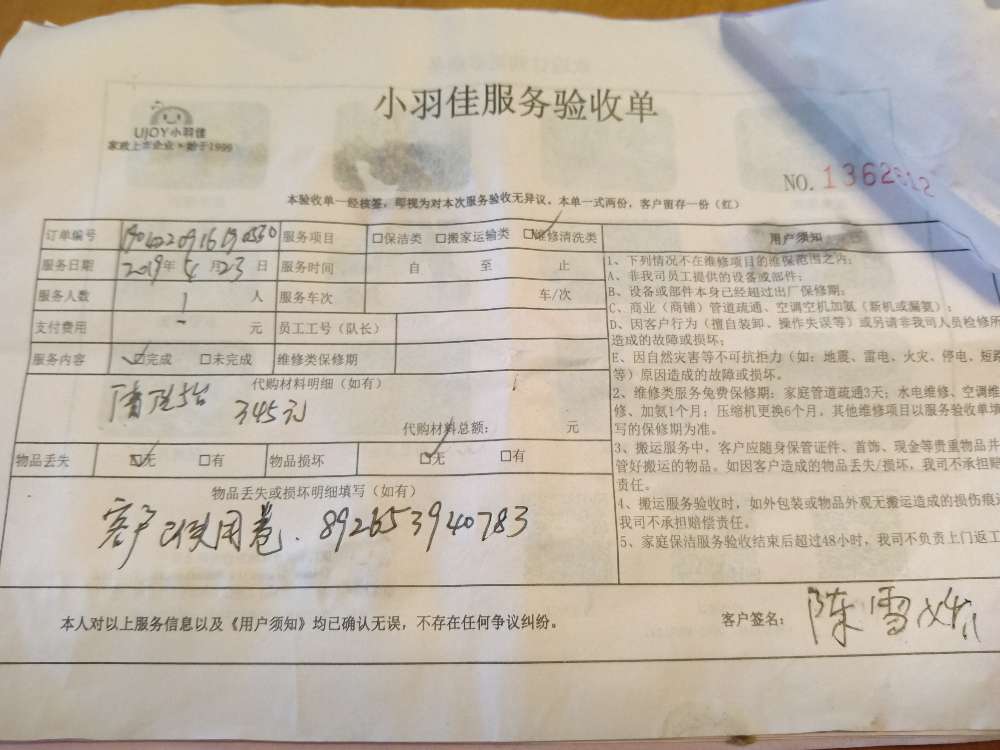 小羽佳服务验收单
UJOY小羽佳
家政上市企业·始于1999
NO.
本验收单一经核签,即视为对本次服务验收无异议。本单一式两份,客户留存一份(红)
订单编号 服务项目 □保洁类 □搬家运输类 □维修清洗类 用户须知
服务日期 2019年 4月23日 服务时间 自 至 止
服务人数 1 人 服务车次 车/次
支付费用 - 元 员工工号(队长)
服务内容 ☑完成 □未完成 维修类保修期
代购材料明细(如有)
345元
代购材料总额: 元
物品丢失 ☑无 □有 物品损坏 ☑无 □有
物品丢失或损坏明细填写(如有)
客户已使用卷.892653940783
1、下列情况不在维修项目的维保范围之内:
A、非我司员工提供的设备或部件;
B、设备或部件本身已经超过出厂保修期;
C、商业(商铺)管道疏通、空调空机加氨(新机或漏氨);
D、因客户行为(擅自装卸、操作失误等)或另请非我司人员检修所
造成的故障或损坏;
E、因自然灾害等不可抗拒力(如:地震、雷电、火灾、停电、短路
等)原因造成的故障或损坏。
2、维修类服务免费保修期:家庭管道疏通3天;水电维修、空调维
修、加氨1个月;压缩机更换6个月,其他维修项目以服务验收单填
写的保修期为准。
3、搬运服务中,客户应随身保管证件、首饰、现金等贵重物品并
管好搬运的物品。如因客户造成的物品丢失/损坏,我司不承担赔
责任。
4、搬运服务验收时,如外包装或物品外观无搬运造成的损伤痕迹
我司不承担赔偿责任。
5、家庭保洁服务验收结束后超过48小时,我司不负责上门返工
本人对以上服务信息以及《用户须知》均已确认无误,不存在任何争议纠纷。 客户签名: 陈雪